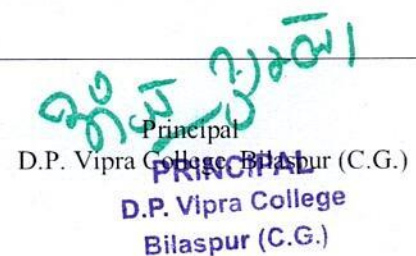 Principal
D.P. Vipra College, Bilaspur (C.G.)
PRINCIPAL
D.P. Vipra College
Bilaspur (C.G.)